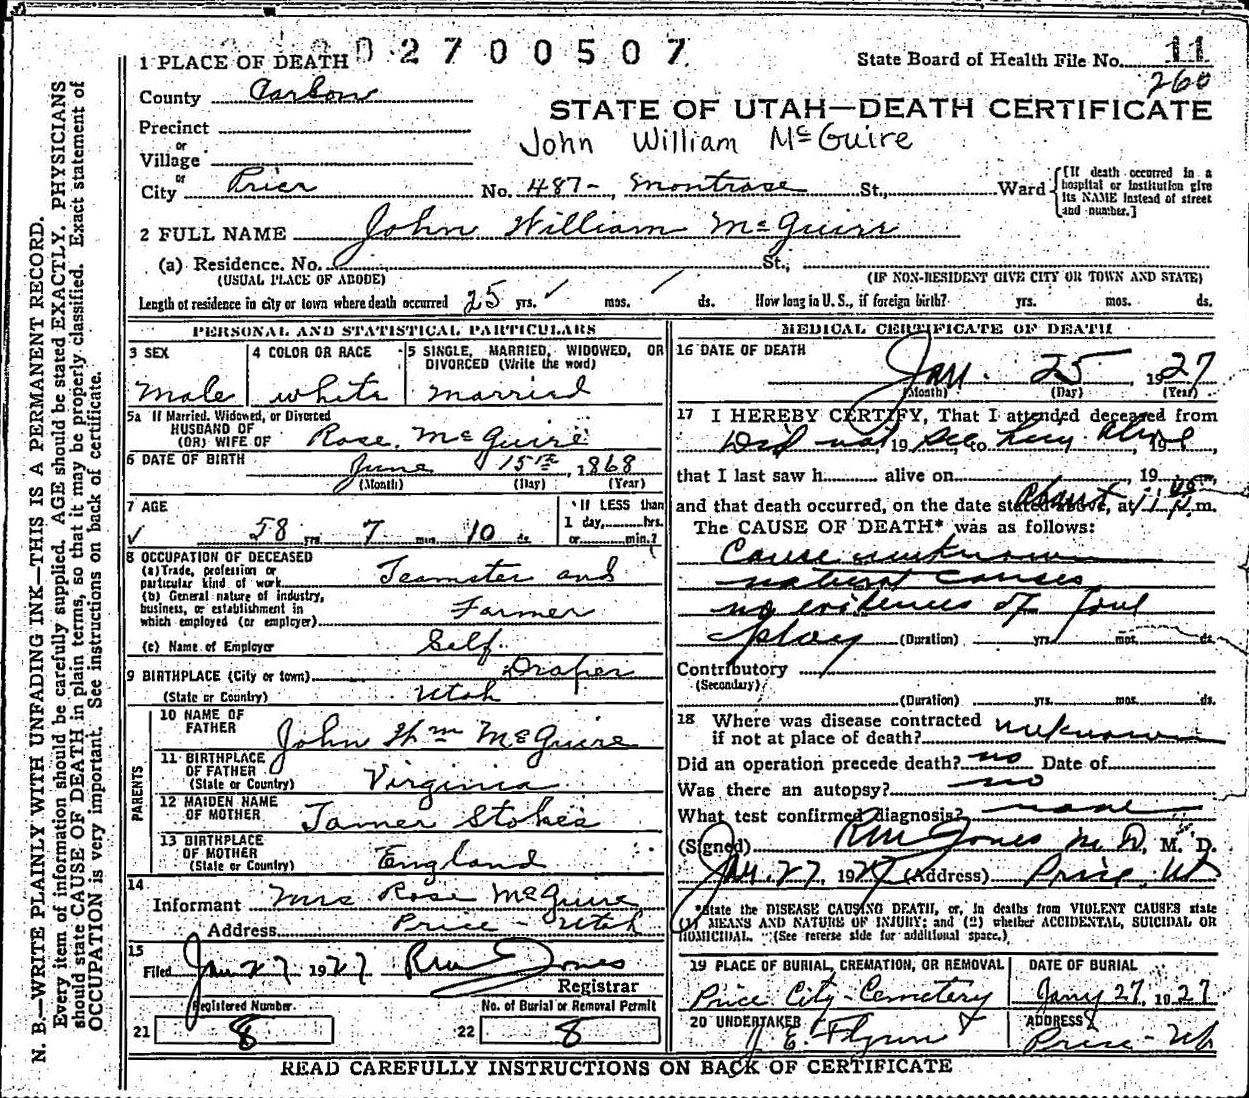 02700507
State Board of Health File No. 11
260
1 PLACE OF DEATH
County Carbon
STATE OF UTAH—DEATH CERTIFICATE
Precinct
John William McGuire
or
Village
or
City Price No. 487- Montrose St., Ward
[If death occurred in a hospital or institution give its NAME instead of street and number.]
2 FULL NAME John William McGuire
(a) Residence. No. St.,
(USUAL PLACE OF ABODE) (IF NON-RESIDENT GIVE CITY OR TOWN AND STATE)
Length of residence in city or town where death occurred 25 yrs. ✓ mos. ds. How long in U. S., if foreign birth? yrs. mos. ds.
PERSONAL AND STATISTICAL PARTICULARS
3 SEX
Male
4 COLOR OR RACE
white
5 SINGLE, MARRIED, WIDOWED, OR DIVORCED (Write the word)
married
5a If Married, Widowed, or Divorced
HUSBAND OF
(OR) WIFE OF Rose McGuire
6 DATE OF BIRTH June 15th, 1868
(Month) (Day) (Year)
7 AGE
✓ 58 yrs. 7 mos. 10 ds.
If LESS than
1 day, hrs.
or min.?
8 OCCUPATION OF DECEASED
(a) Trade, profession or
particular kind of work Teamster and
(b) General nature of industry,
business, or establishment in
which employed (or employer) Farmer
(c) Name of Employer Self
9 BIRTHPLACE (City or town) Draper
(State or Country) Utah
PARENTS
10 NAME OF
FATHER John Wm McGuire
11 BIRTHPLACE
OF FATHER
(State or Country) Virginia
12 MAIDEN NAME
OF MOTHER Tamer Stokes
13 BIRTHPLACE
OF MOTHER
(State or Country) England
14
Informant Mrs Rose McGuire
Address Price - Utah
15
Filed Jan 27 1927 RW Jones
Registrar
Registered Number. No. of Burial or Removal Permit
21 8 22 8
MEDICAL CERTIFICATE OF DEATH
16 DATE OF DEATH
Jan. 25, 1927
(Month) (Day) (Year)
17 I HEREBY CERTIFY, That I attended deceased from
Did not, 19 see to him alive, 19 ,
that I last saw h alive on , 19
and that death occurred, on the date stated above, at about 11 P.m.
The CAUSE OF DEATH* was as follows:
Cause unknown
natural causes
no evidences of foul
play (Duration) yrs. mos. ds.
Contributory
(Secondary)
(Duration) yrs. mos. ds.
18 Where was disease contracted
if not at place of death? unknown
Did an operation precede death? no Date of
Was there an autopsy? no
What test confirmed diagnosis? none
(Signed) RW Jones M D, M. D.
Jan. 27, 1927 (Address) Price, Ut
*State the DISEASE CAUSING DEATH, or, in deaths from VIOLENT CAUSES state
(1) MEANS AND NATURE OF INJURY; and (2) whether ACCIDENTAL, SUICIDAL OR
HOMICIDAL. (See reverse side for additional space.)
19 PLACE OF BURIAL, CREMATION, OR REMOVAL
Price City - Cemetery
DATE OF BURIAL
Jany 27, 1927
20 UNDERTAKER
J. E. Flynn
ADDRESS
Price - Ut
READ CAREFULLY INSTRUCTIONS ON BACK OF CERTIFICATE
N. B.—WRITE PLAINLY WITH UNFADING INK—THIS IS A PERMANENT RECORD.
Every item of information should be carefully supplied. AGE should be stated EXACTLY. PHYSICIANS
should state CAUSE OF DEATH in plain terms, so that it may be properly classified. Exact statement of
OCCUPATION is very important. See instructions on back of certificate.